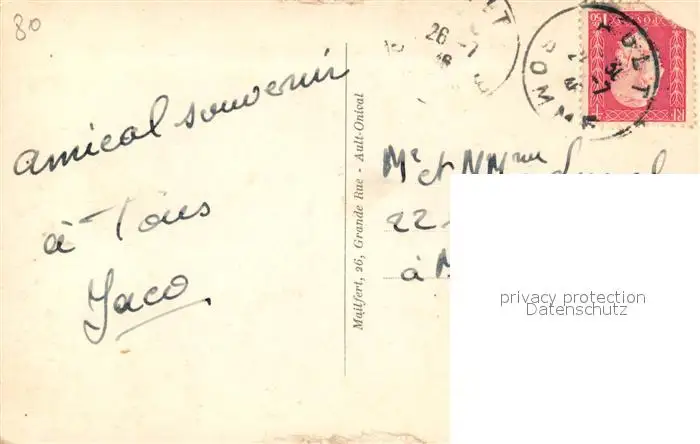 80
AULT
26 -7
SOMME
1F50
POSTES
RF
amical souvenir
à Tous
Jaco
Mailfert, 26, Grande Rue - Ault-Onival
Mr et
22
à
privacy protection
Datenschutz